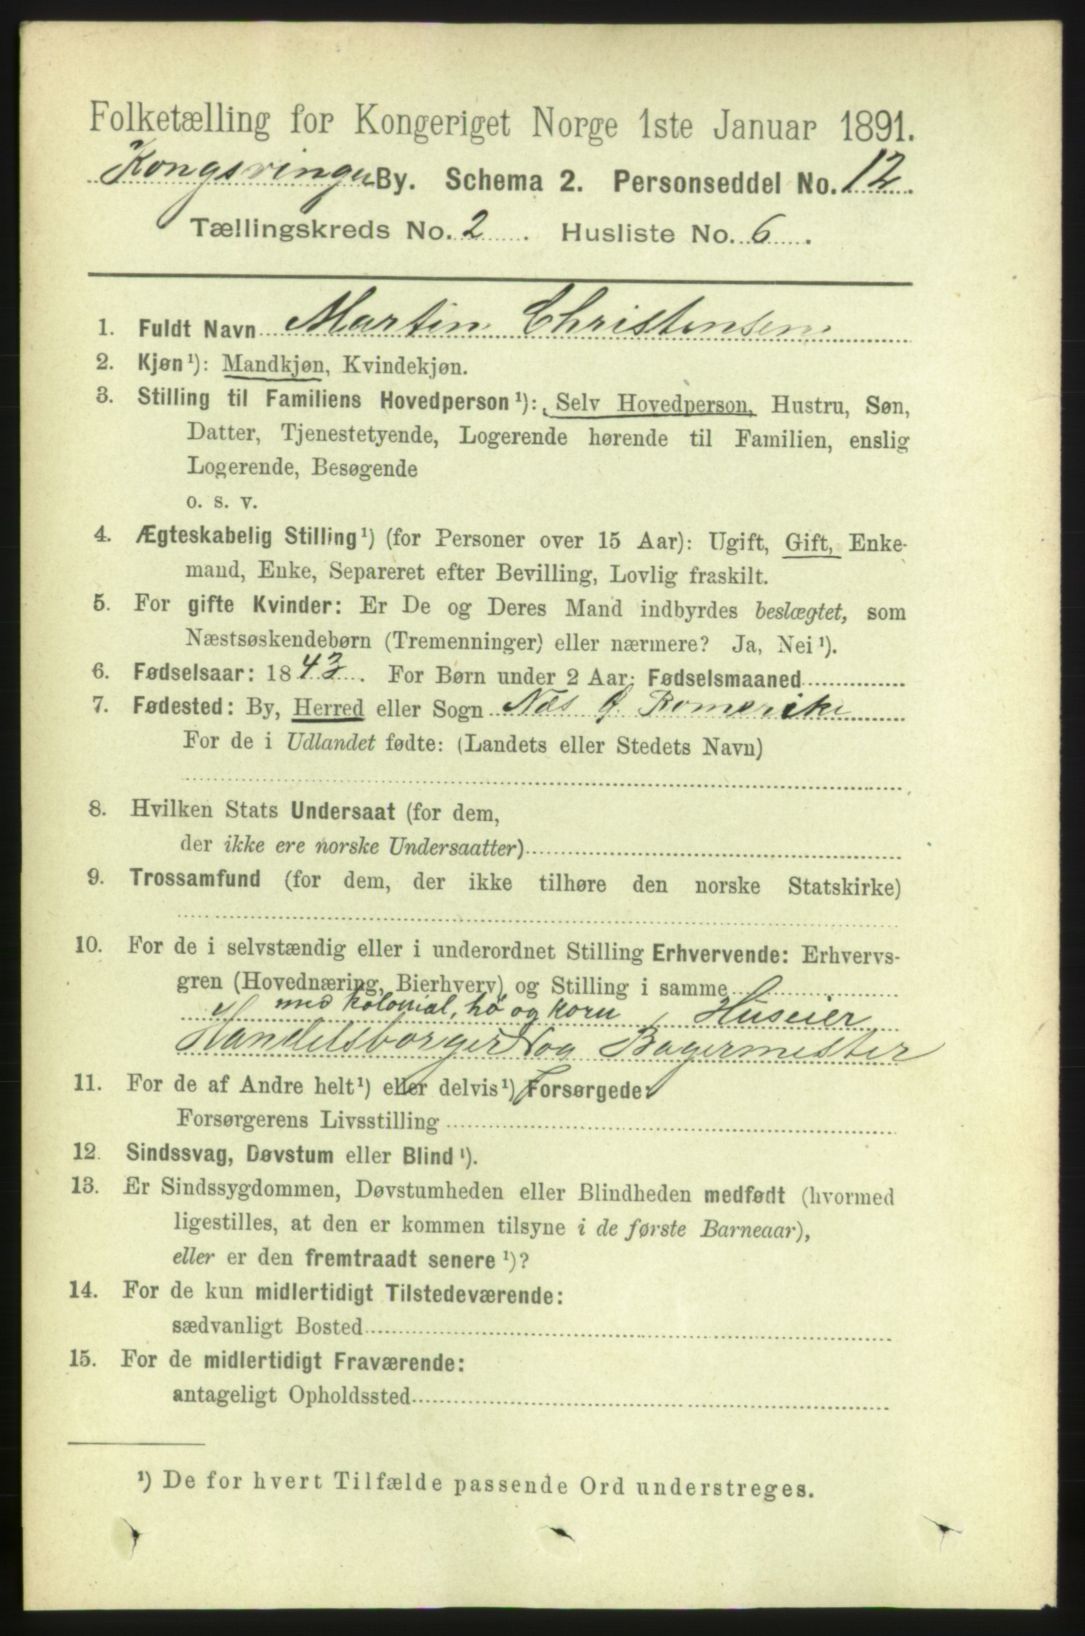 Folketælling for Kongeriget Norge 1ste Januar 1891.
Kongsvinger By. Schema 2. Personseddel No. 12.
Tællingskreds No. 2. Husliste No. 6.
1. Fuldt Navn Martin Christensen
2. Kjøn ¹): Mandkjøn, Kvindekjøn.
3. Stilling til Familiens Hovedperson ¹): Selv Hovedperson, Hustru, Søn,
Datter, Tjenestetyende, Logerende hørende til Familien, enslig
Logerende, Besøgende
o. s. v.
4. Ægteskabelig Stilling ¹) (for Personer over 15 Aar): Ugift, Gift, Enke-
mand, Enke, Separeret efter Bevilling, Lovlig fraskilt.
5. For gifte Kvinder: Er De og Deres Mand indbyrdes beslægtet, som
Næstsøskendebørn (Tremenninger) eller nærmere? Ja, Nei ¹).
6. Fødselsaar: 1843. For Børn under 2 Aar: Fødselsmaaned
7. Fødested: By, Herred eller Sogn Næs Ø. Romerike
For de i Udlandet fødte: (Landets eller Stedets Navn)
8. Hvilken Stats Undersaat (for dem,
der ikke ere norske Undersaatter)
9. Trossamfund (for dem, der ikke tilhøre den norske Statskirke)
10. For de i selvstændig eller i underordnet Stilling Erhvervende: Erhvervs-
gren (Hovednæring, Bierhverv) og Stilling i samme
med kolonial, hø og korn, Huseier
Handelsborger og Bagermester
11. For de af Andre helt ¹) eller delvis ¹) Forsørgede:
Forsørgerens Livsstilling
12. Sindssvag, Døvstum eller Blind ¹).
13. Er Sindssygdommen, Døvstumheden eller Blindheden medfødt (hvormed
ligestilles, at den er kommen tilsyne i de første Barneaar),
eller er den fremtraadt senere ¹)?
14. For de kun midlertidigt Tilstedeværende:
sædvanligt Bosted
15. For de midlertidigt Fraværende:
antageligt Opholdssted
¹) De for hvert Tilfælde passende Ord understreges.